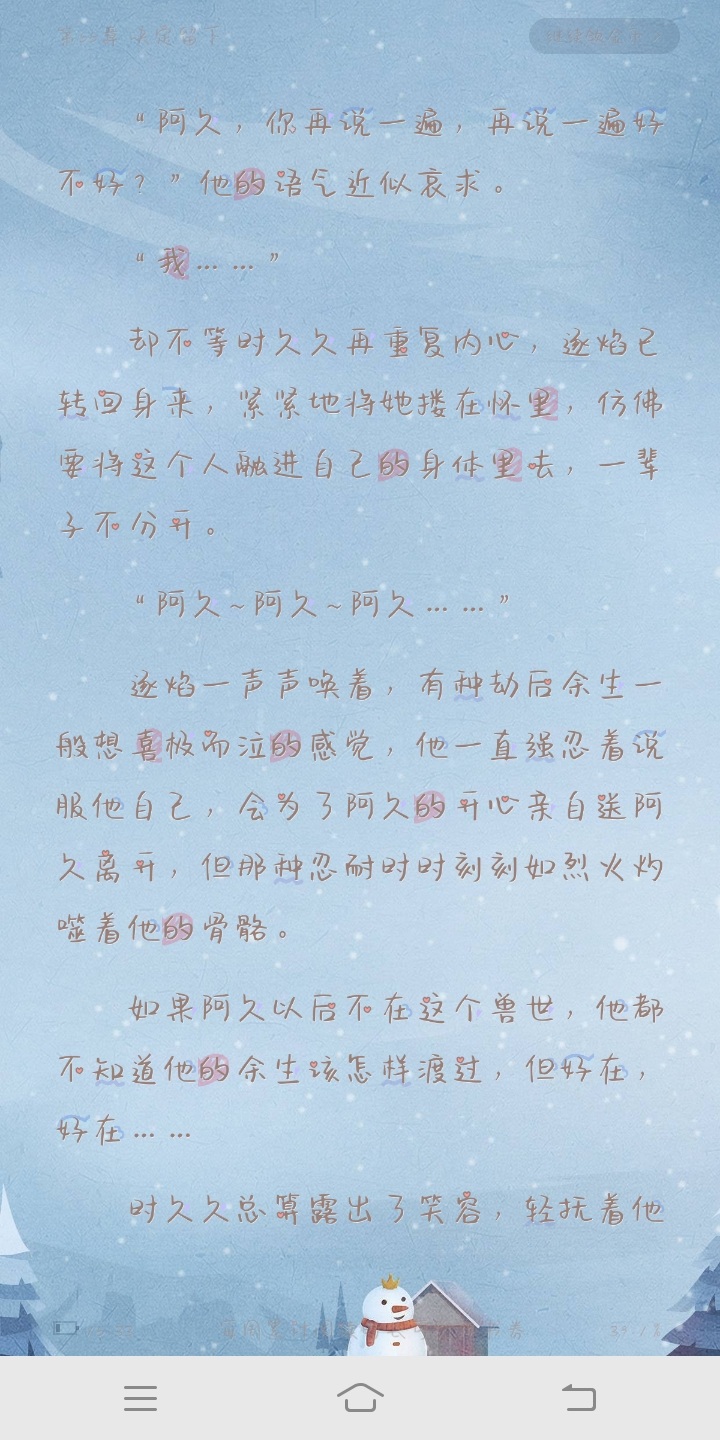 “阿久，你再说一遍，再说一遍好
不好？”他的语气近似哀求。
“我……”
却不等时久久再重复内心，逐焰已
转回身来，紧紧地将她搂在怀里，仿佛
要将这个人融进自己的身体里去，一辈
子不分开。
“阿久~阿久~阿久……”
逐焰一声声唤着，有种劫后余生一
般想喜极而泣的感觉，他一直强忍着说
服他自己，会为了阿久的开心亲自送阿
久离开，但那种忍耐时时刻刻如烈火灼
噬着他的骨骼。
如果阿久以后不在这个兽世，他都
不知道他的余生该怎样渡过，但好在，
好在……
时久久总算露出了笑容，轻抚着他